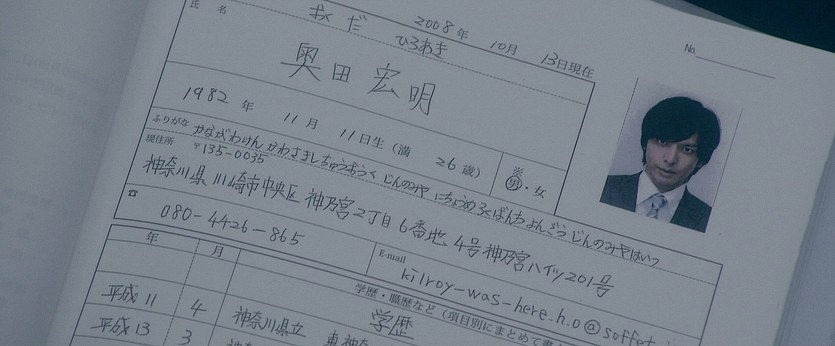 氏名 おくだ ひろあき
2008年 10月 13日現在
No.
奥田 宏明
1982年 11月 11日生(満 26歳) ※ 男・女
ふりがな かながわけん かわさきしちゅうおうく じんのみや にちょうめ ろくばんち よんごう じんのみやはいつ
現住所 〒135-0035
神奈川県 川崎市中央区 神乃宮2丁目6番地 4号 神乃宮ハイツ201号
☎ 080-4426-865
E-mail kilroy-was-here.h.o@soffet
年 月 学歴・職歴など(項目別にまとめて書
学歴
平成11 4 神奈川県立 東神奈
平成13 3